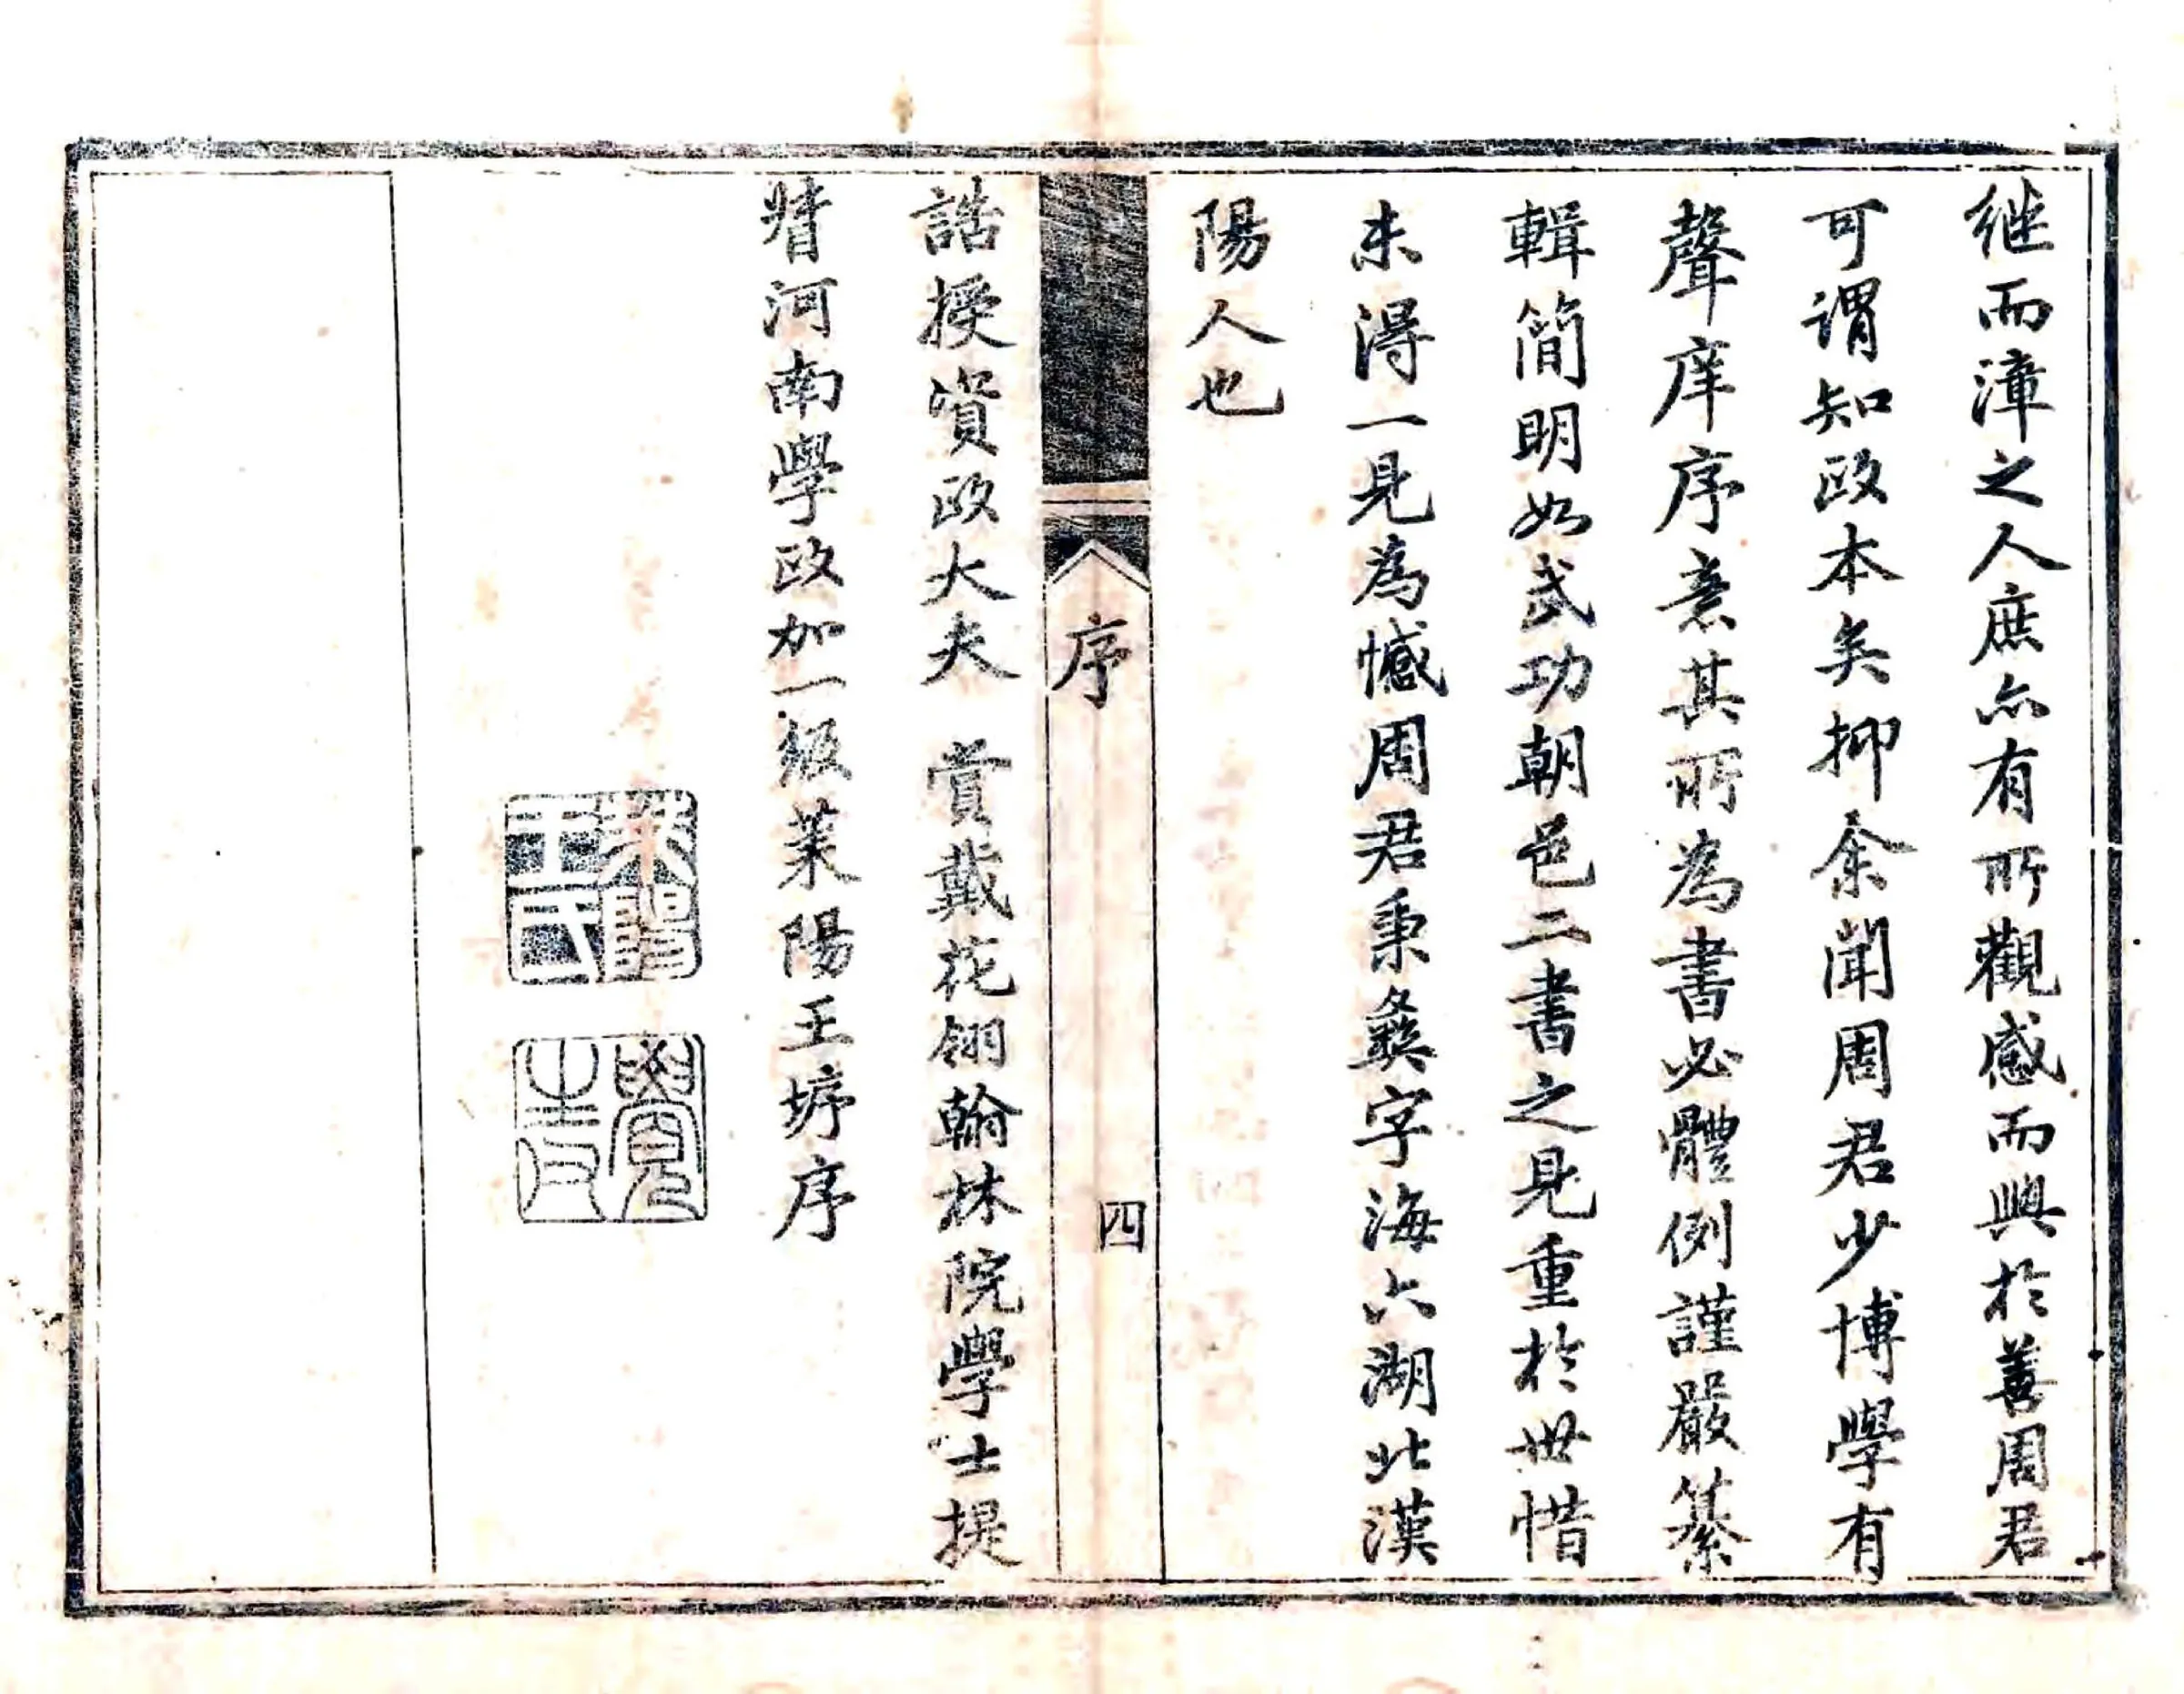 继而漳之人庶亦有所觀感而興於善周君
可谓知政本矣抑余聞周君少博學有
聲庠序意其所為書必體例謹嚴纂
輯簡明如武功朝邑二書之見重於世惜
未得一見為憾周君秉彝字海六湖北漢
陽人也
序
四
誥授資政大夫 賞戴花翎翰林院學士提
督河南學政加一級萊陽王垿序
萊陽王氏
覺生